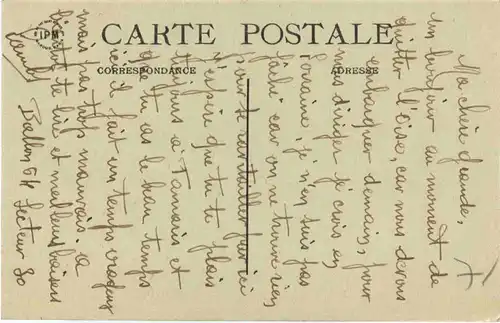 CARTE POSTALE
CORRESPONDANCE
ADRESSE
IPM
Ma chère grande,
un bonjour au moment de
quitter l'Oise, car nous devons
embarquer demain, pour
nous diriger je crois en
Lorraine je n'en suis pas
fâché car on ne trouve rien
pour se ravitailler par ici
j'espère que tu te plais
toujours à Tamaris et
que tu as le beau temps
ici il fait un temps
mais pas très mauvais à
bientôt te lire et meilleurs baisers
Ballon 54 Secteur 80